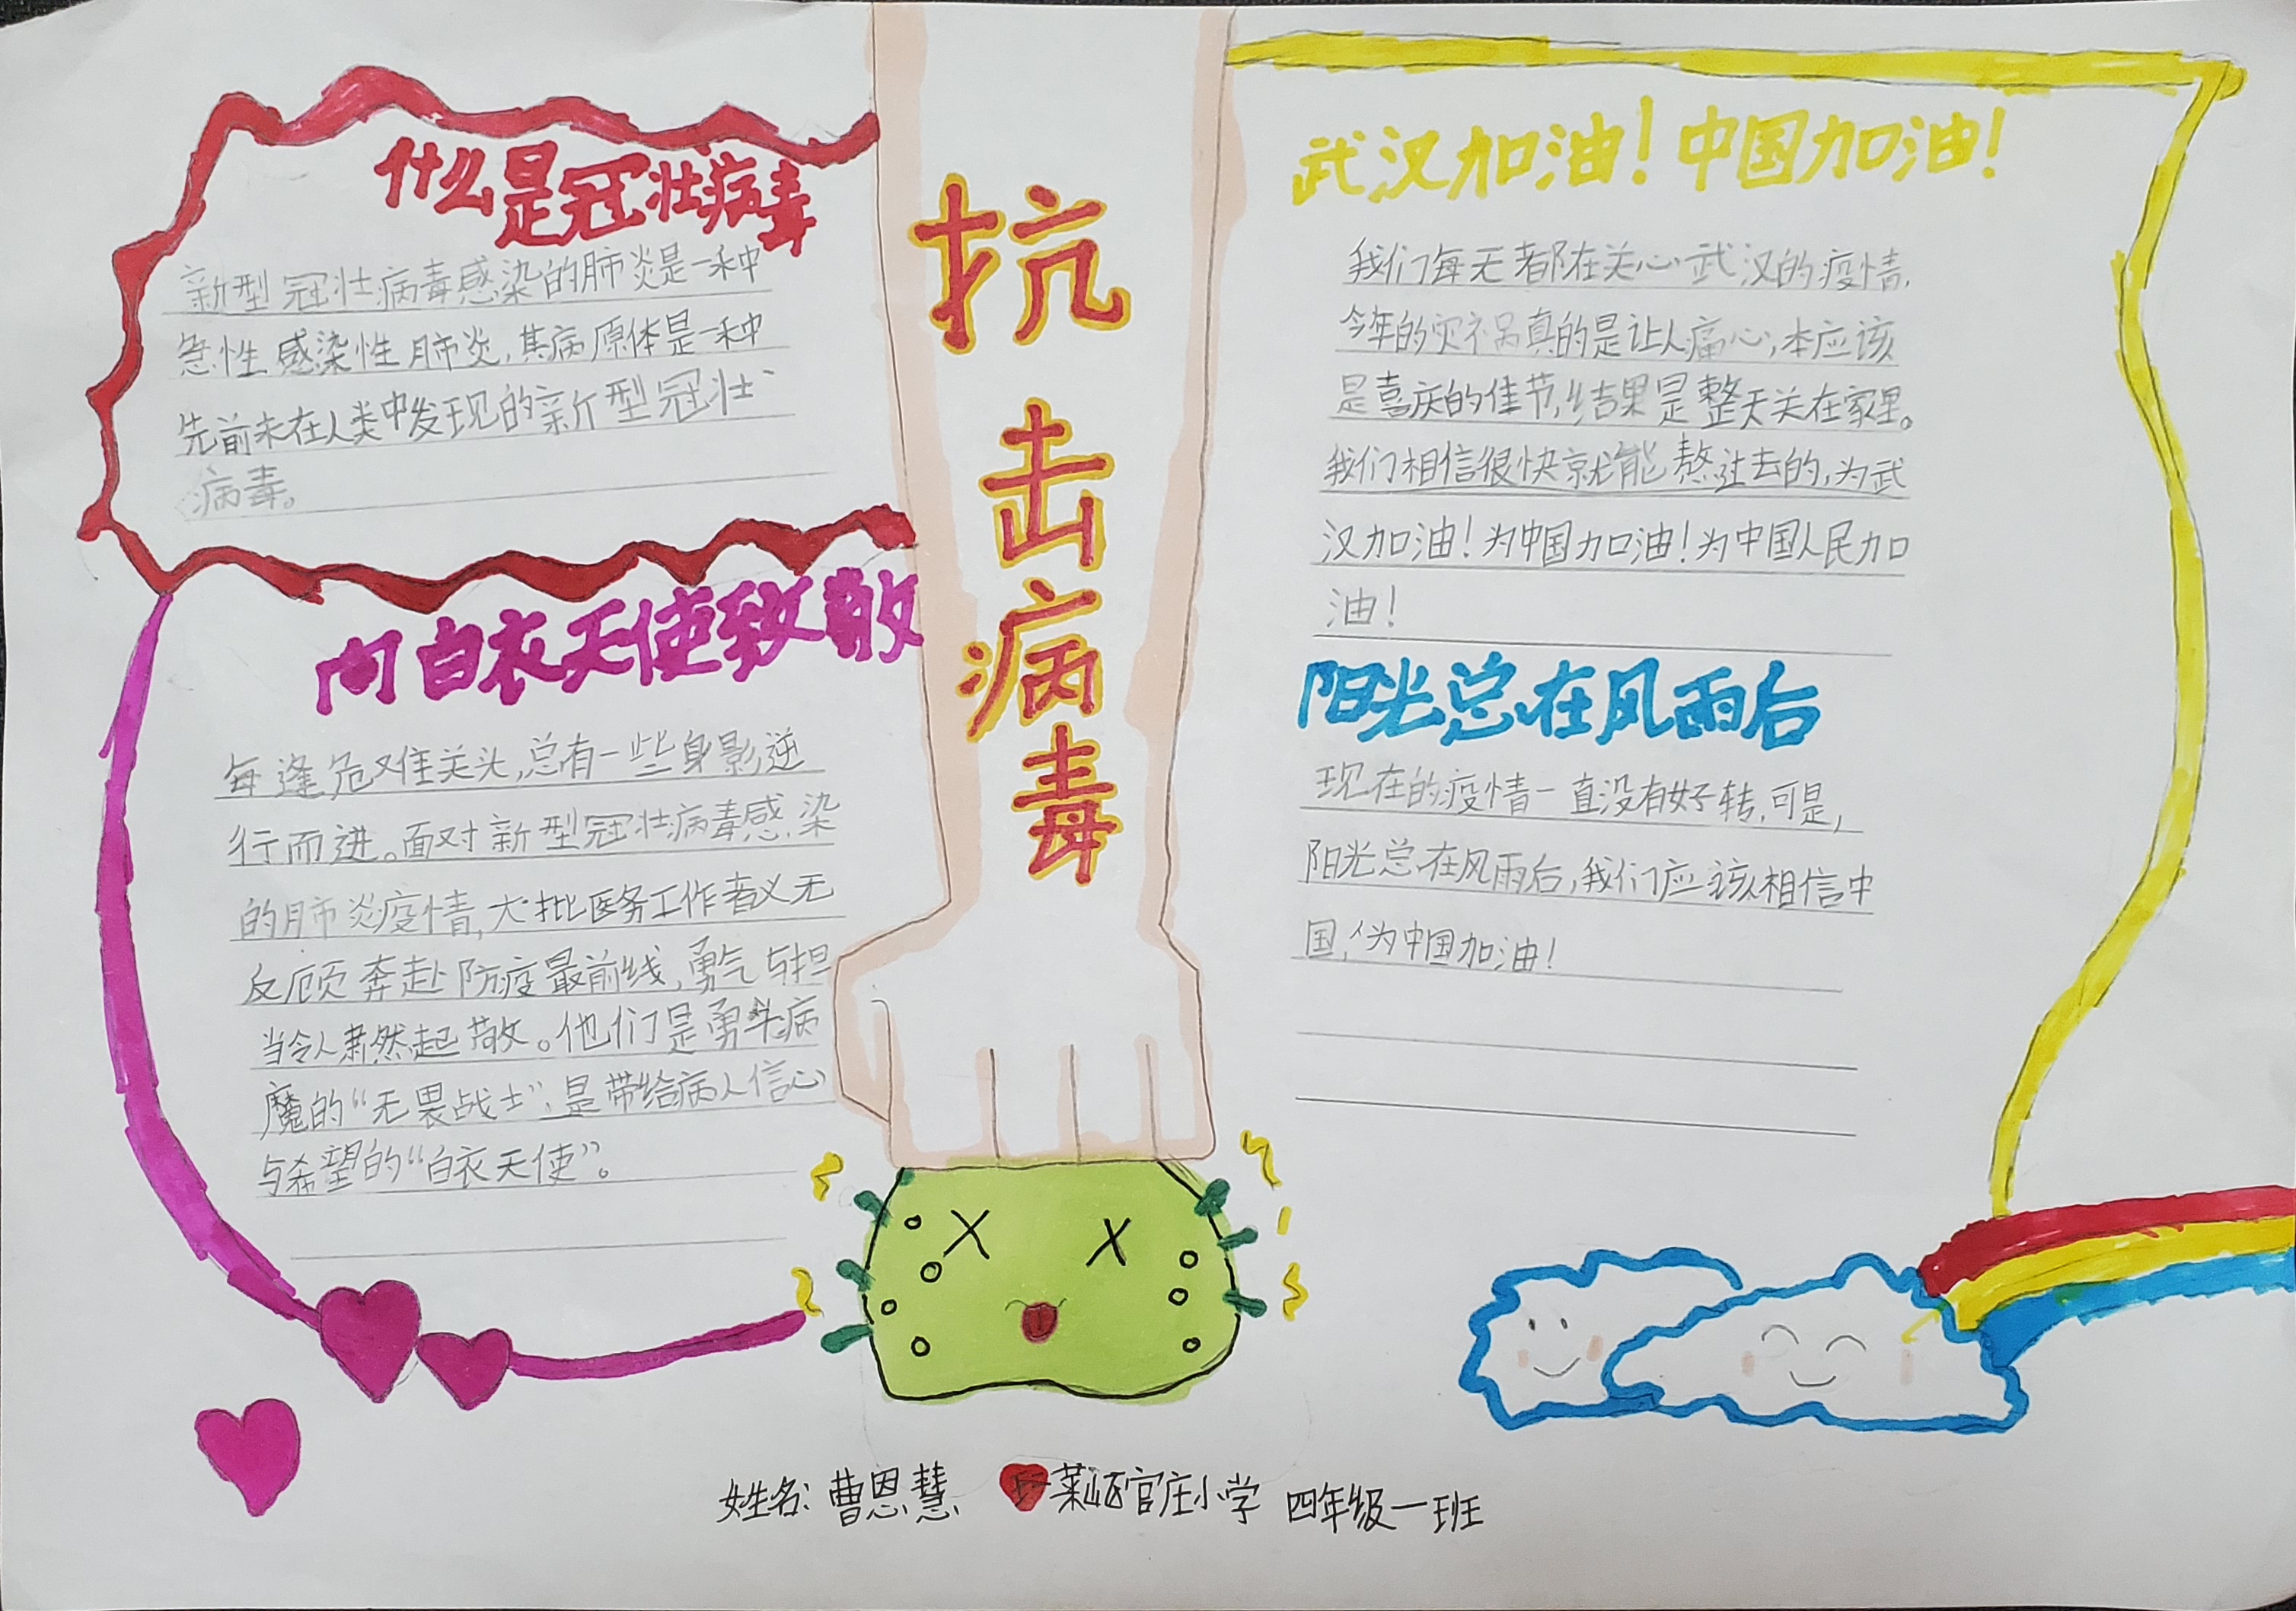 什么是冠壮病毒
新型冠壮病毒感染的肺炎是一种
急性感染性肺炎,其病原体是一种
先前未在人类中发现的新型冠壮
病毒。
向白衣天使致敬
每逢危难关头,总有一些身影逆
行而进。面对新型冠壮病毒感染
的肺炎疫情,大批医务工作者义无
反顾奔赴防疫最前线,勇气与担
当令人肃然起敬。他们是勇斗病
魔的“无畏战士”,是带给病人信心
与希望的“白衣天使”。
抗
击
病
毒
武汉加油!中国加油!
我们每天都在关心武汉的疫情,
今年的灾祸真的是让人痛心,本应该
是喜庆的佳节,结果是整天关在家里。
我们相信很快就能熬过去的,为武
汉加油!为中国加油!为中国人民加
油!
阳光总在风雨后
现在的疫情一直没有好转,可是,
阳光总在风雨后,我们应该相信中
国,为中国加油!
姓名:曹恩慧 莱山区官庄小学 四年级一班